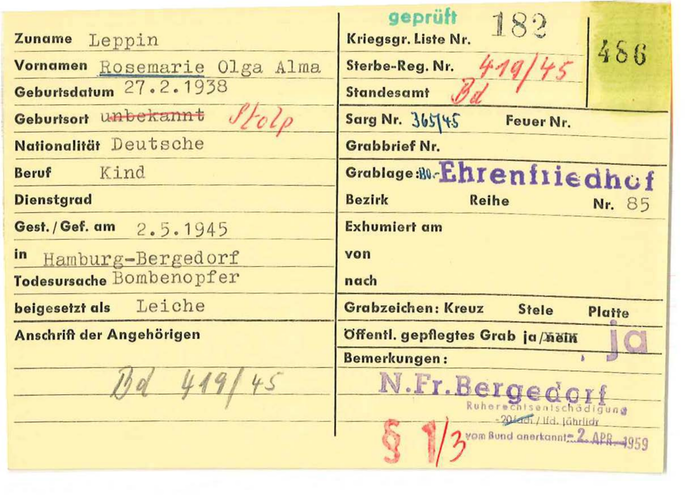 Zuname Leppin
Vornamen Rosemarie Olga Alma
Geburtsdatum 27.2.1938
Geburtsort unbekannt Stolp
Nationalität Deutsche
Beruf Kind
Dienstgrad
Gest./Gef. am 2.5.1945
in Hamburg-Bergedorf
Todesursache Bombenopfer
beigesetzt als Leiche
Anschrift der Angehörigen
Bd 419/45
geprüft
Kriegsgr. Liste Nr. 182
486
Sterbe-Reg. Nr. 419/45
Standesamt Bd
Sarg Nr. 365/45 Feuer Nr.
Grabbrief Nr.
Grablage: Ehrenfriedhof
Bezirk Reihe Nr. 85
Exhumiert am
von
nach
Grabzeichen: Kreuz Stele Platte
Öffentl. gepflegtes Grab ja/nein ja
Bemerkungen:
N.Fr.Bergedorf
Ruherechtsentschädigung
lfd. jährlich
vom Bund anerkannt 2. APR. 1959
§ 1/3